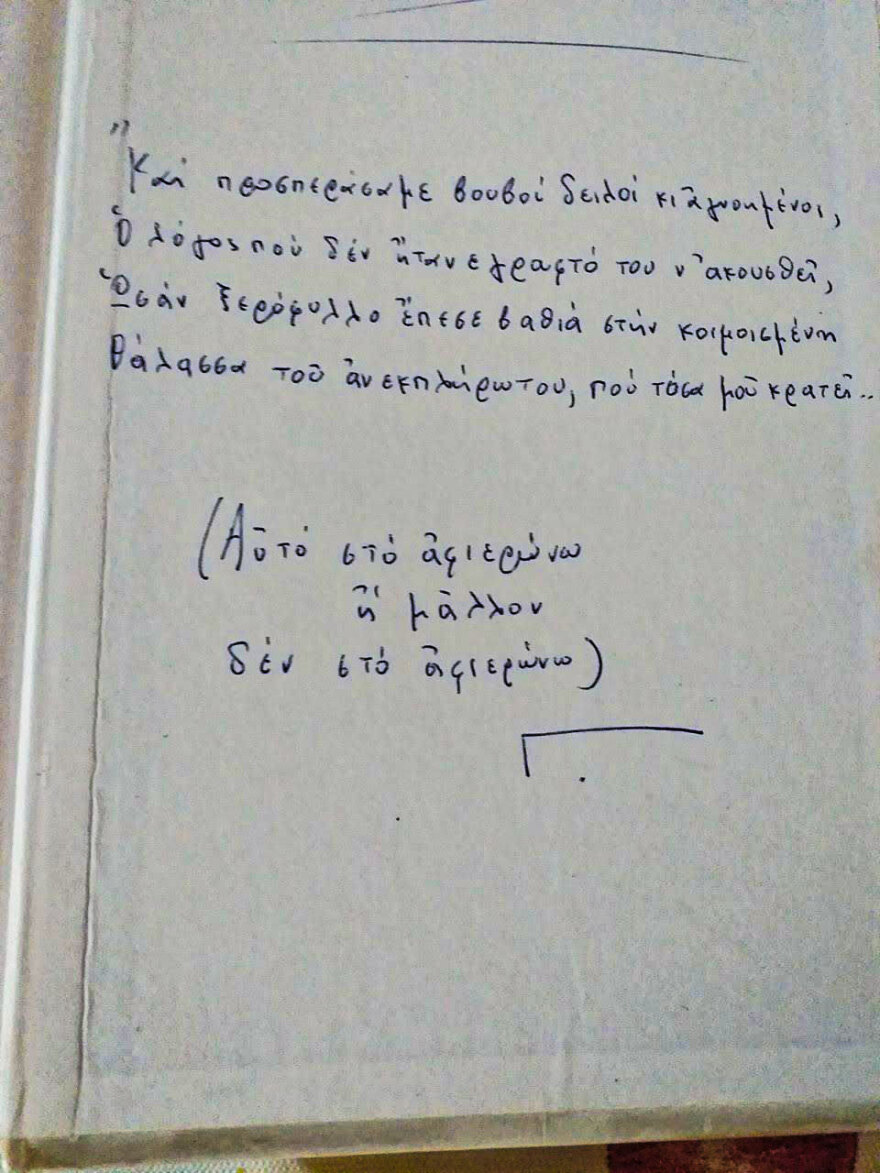 "Καί προσπεράσαμε βουβοί δειλοί κι ἀγνοημένοι,
Ὁ λόγος πού δέν ἤτανε γραφτό του ν' ακουσθεῖ,
Ὡσάν ξερόφυλλο ἔπεσε βαθιά στήν κοιμοισμένη
θάλασσα τοῦ ἀνεκπλήρωτου, πού τόσα μοῦ κρατεῖ..
(Αὐτό στό ἀφιερώνω
ἤ μᾶλλον
δέν στό ἀφιερώνω)